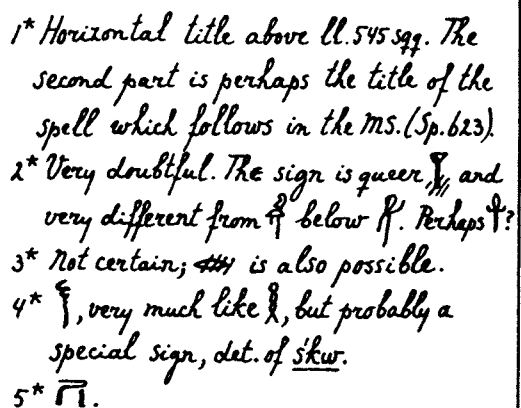 1* Horizontal title above ll.545 sqq. The
second part is perhaps the title of the
spell which follows in the MS. (Sp.623).
2* Very doubtful. The sign is queer, and
very different from below. Perhaps ?
3* Not certain; is also possible.
4* , very much like , but probably a
special sign, det. of śkw.
5* .